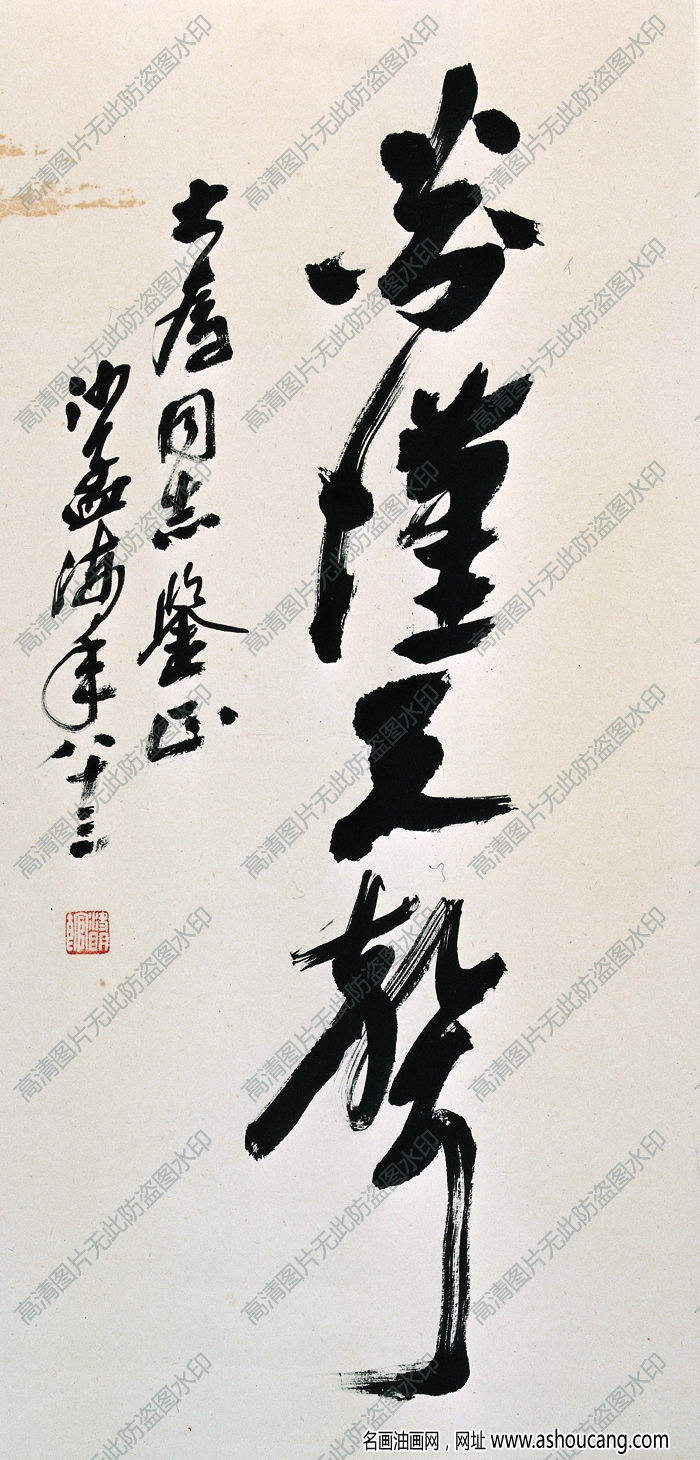 炎漢天聲
同志鑒正
沙孟海年八十三
高清图片无此防盗图水印
名画油画网，网址 www.ashoucang.com